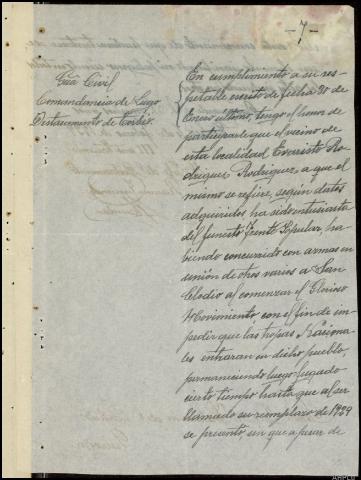 -7-
Guª Civil
Comandancia de Lugo
Destacamento de
En cumplimiento a su res-
petable escrito de fecha 20 de
Enero ultimo, tengo el honor de
participarle que el vecino de
esta localidad Evaristo Ro-
driguez Rodriguez, a que el
mismo se refiere, según datos
adquiridos ha sido entusiasta
del funesto Frente Popular, ha-
biendo concurrido con armas en
unión de otros varios a San
Clodio al comenzar el Glorioso
Movimiento con el fin de im-
pedir que las tropas Naciona-
les entraran en dicho pueblo,
permaneciendo luego fugado
cierto tiempo hasta que al ser
llamado su reemplazo de 1929
se presentó, sin que a pesar de
AHPLU